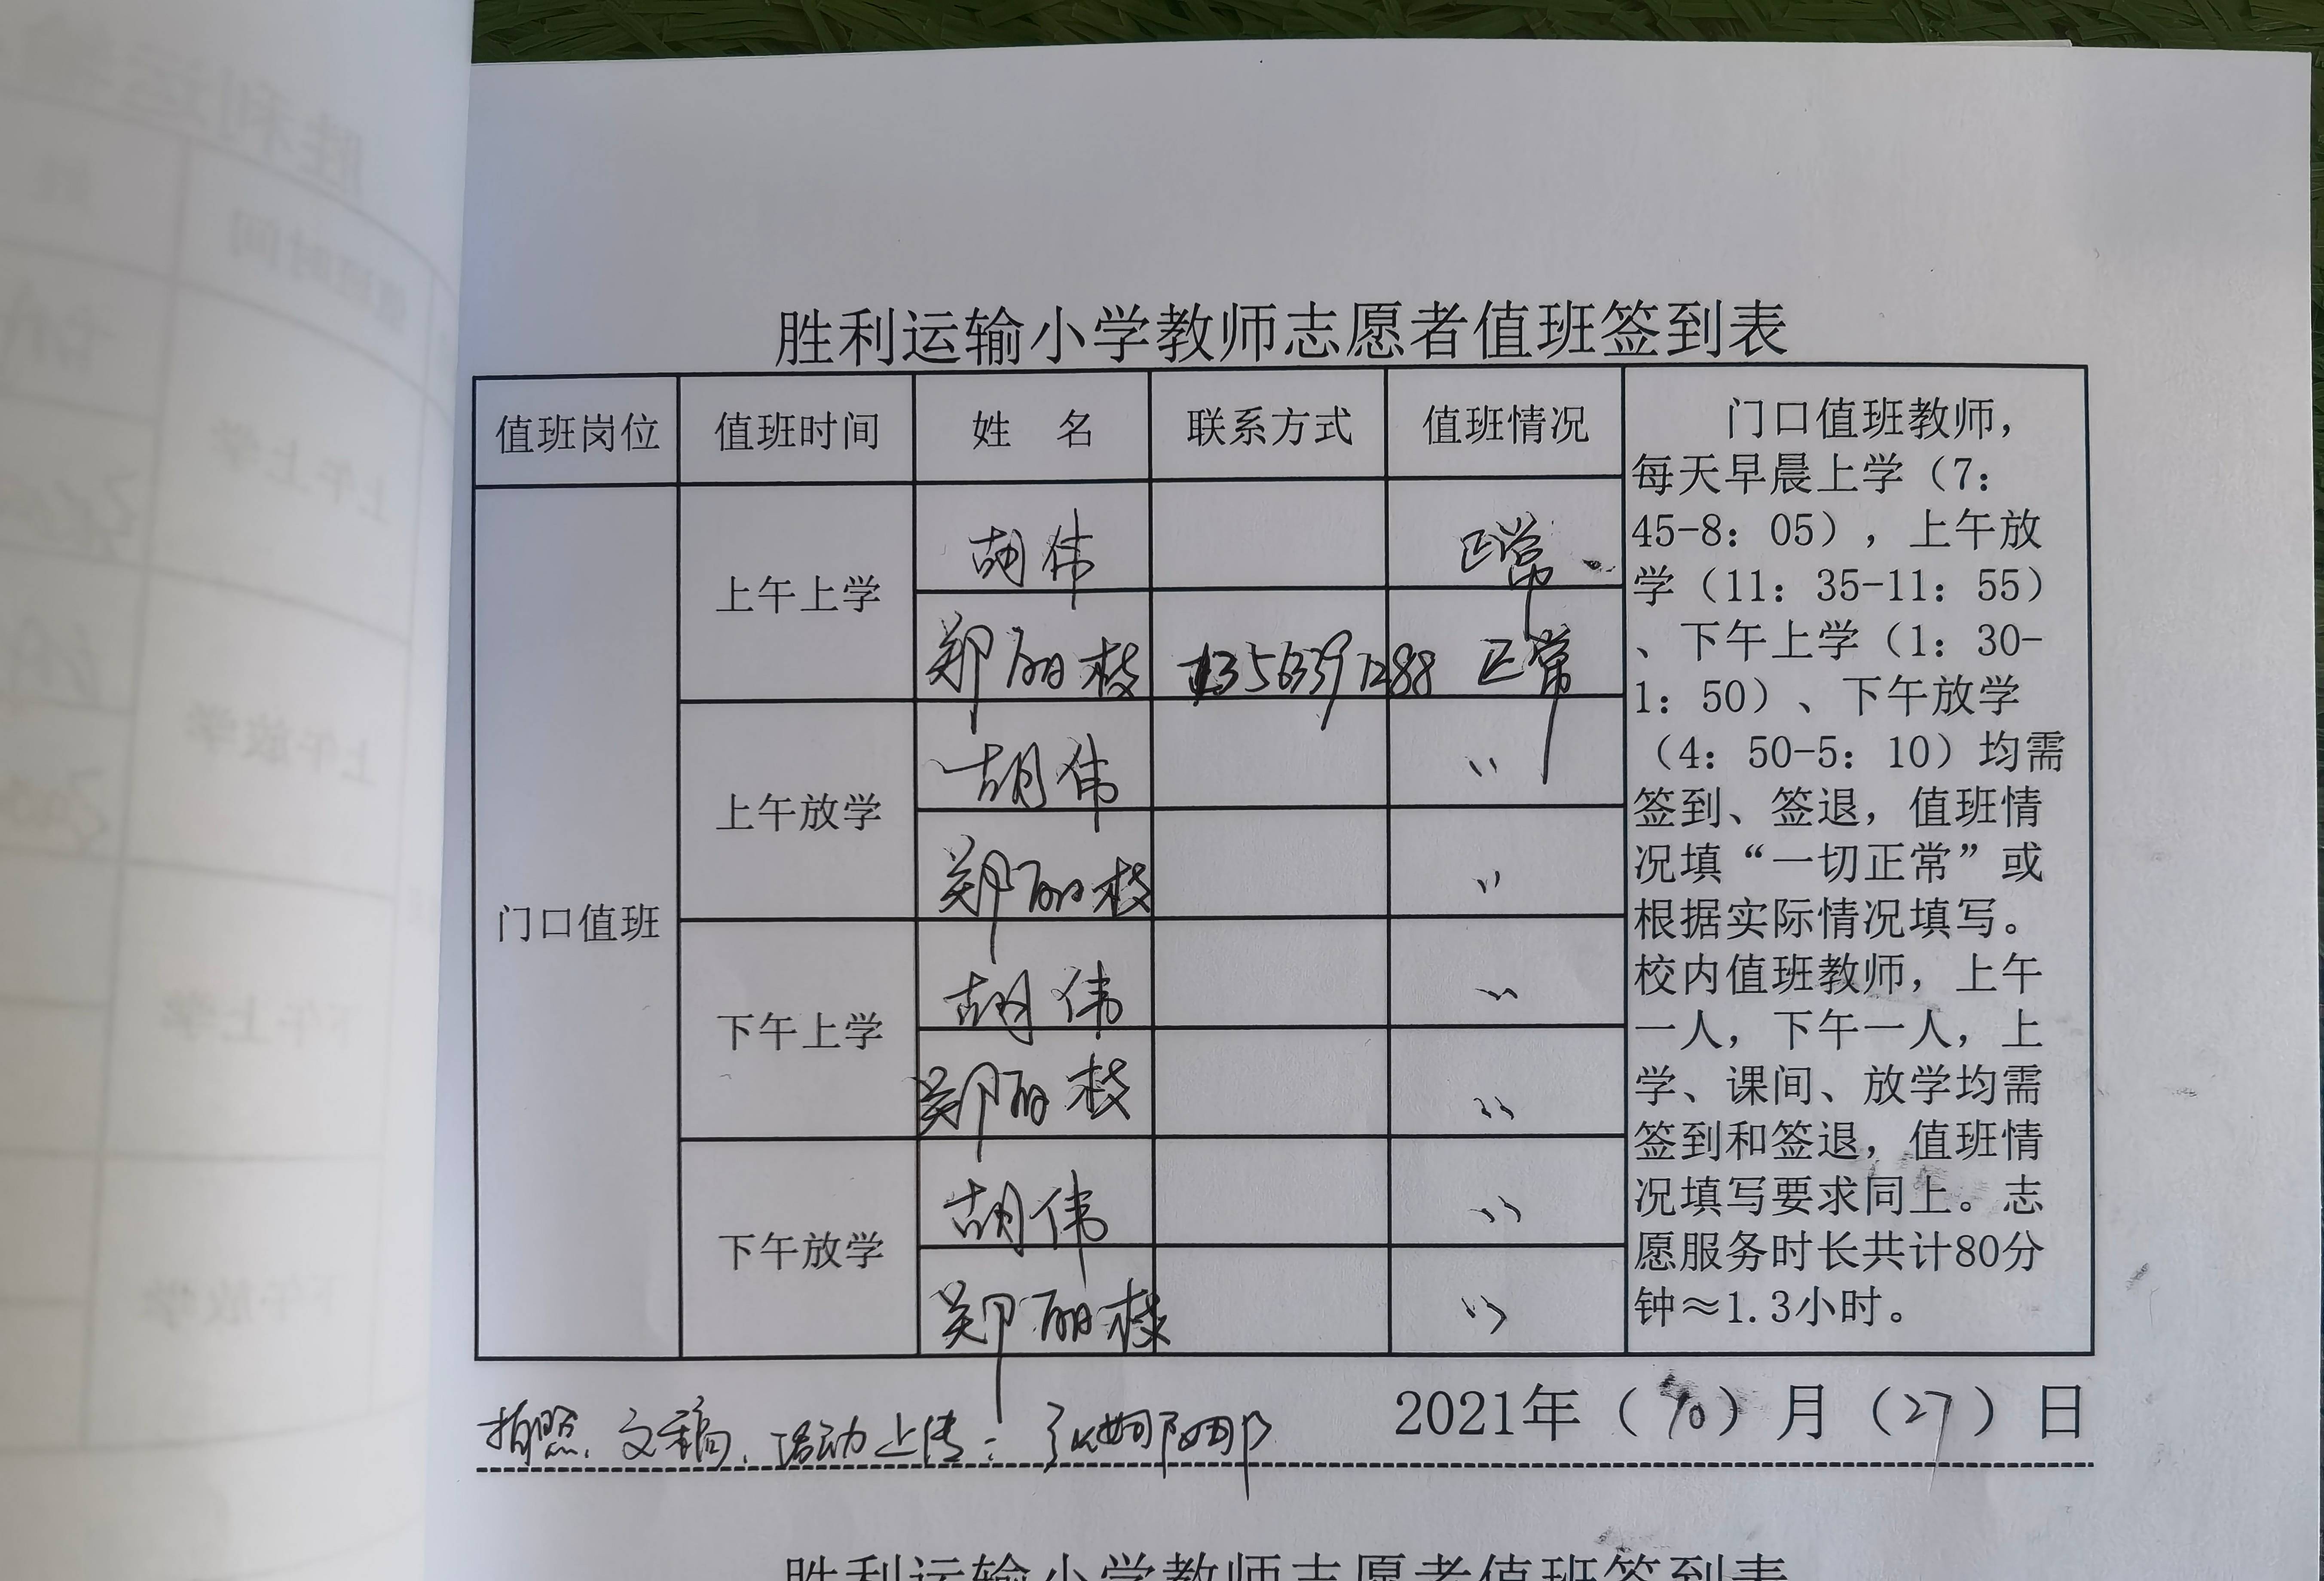 胜利运输小学教师志愿者值班签到表
值班岗位 值班时间 姓 名 联系方式 值班情况
门口值班
上午上学
胡伟 正常
郑丽枝 正常
上午放学
胡伟 〃
郑丽枝 〃
下午上学
胡伟 〃
郑丽枝 〃
下午放学
胡伟 〃
郑丽枝 〃
门口值班教师，
每天早晨上学（7：
45-8：05），上午放
学（11：35-11：55）
、下午上学（1：30-
1：50）、下午放学
（4：50-5：10）均需
签到、签退，值班情
况填“一切正常”或
根据实际情况填写。
校内值班教师，上午
一人，下午一人，上
学、课间、放学均需
签到和签退，值班情
况填写要求同上。志
愿服务时长共计80分
钟≈1.3小时。
2021年（10）月（27）日
拍照、文稿、活动上传：张娜娜
胜利运输小学教师志愿者值班签到表